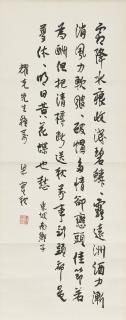 霜降水痕收淺碧鱗鱗露遠洲酒力漸
消風力軟颼颼破帽多情卻戀頭佳節若
為酬但把清樽斷送秋萬事到頭都是
夢休休明日黃花蝶也愁 東坡南鄉子
先生 梁寒操